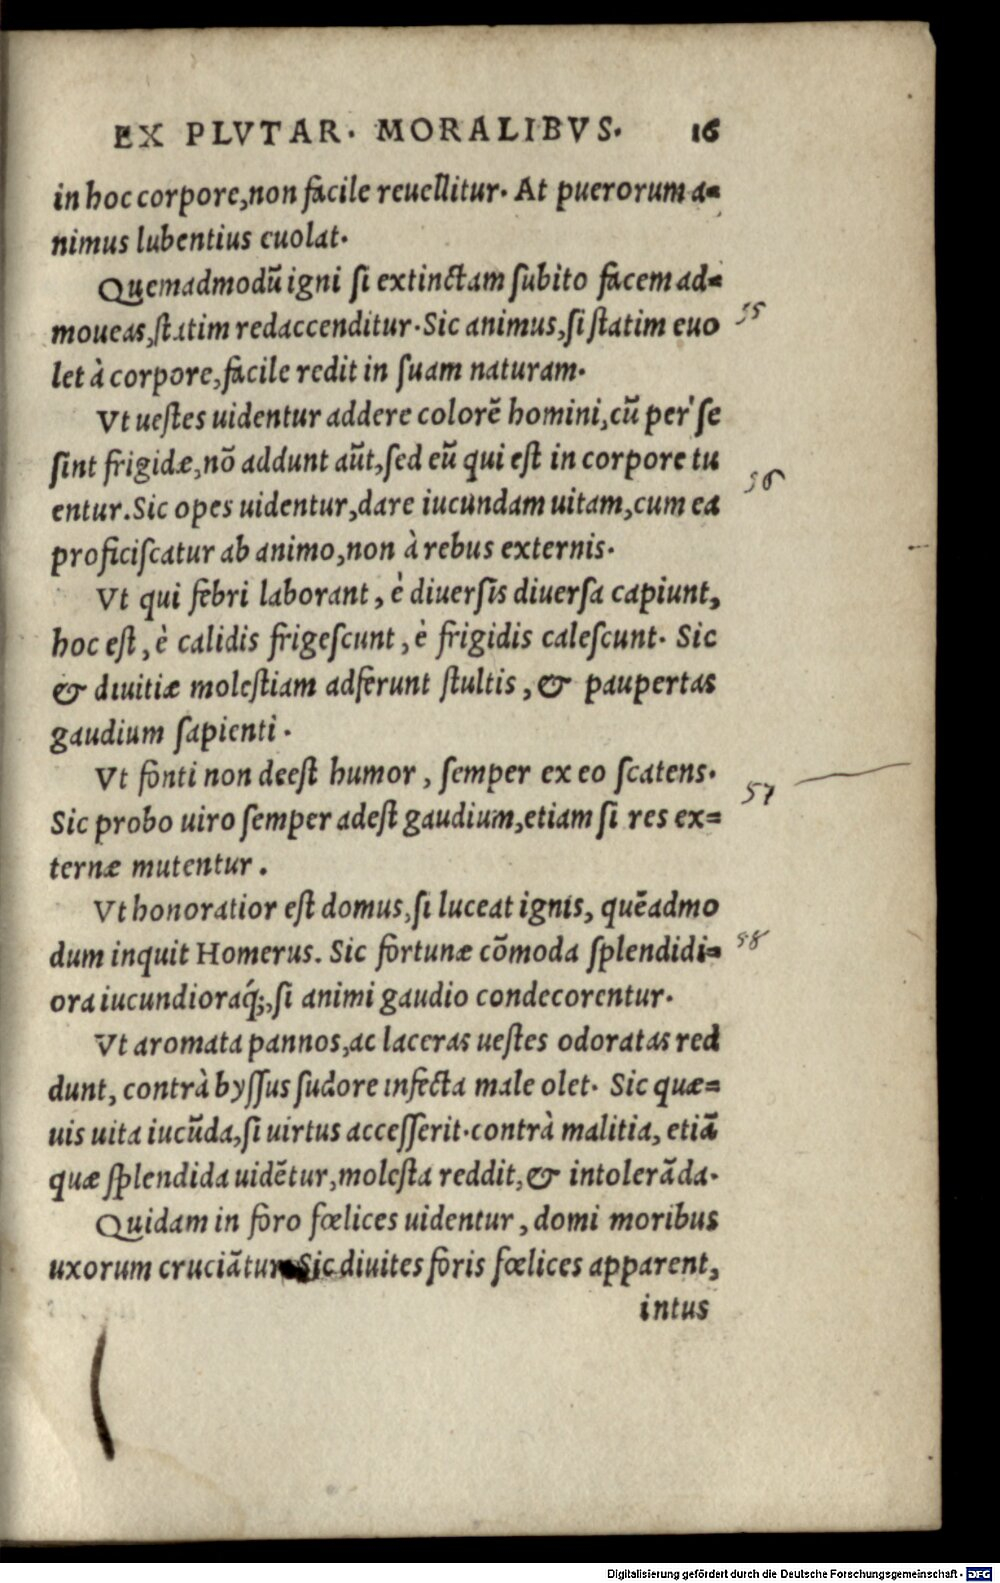 EX PLVTAR. MORALIBVS. 16
in hoc corpore,non facile reuellitur. At puerorum a=
nimus lubentius euolat.
Quemadmodũ igni si extinctam subito facem ad=
moueas,statim redaccenditur. Sic animus,si statim euo
let à corpore,facile redit in suam naturam.
55
Vt uestes uidentur addere colorē homini,cũ per se
sint frigidæ,nõ addunt aũt,sed eũ qui est in corpore tu
entur. Sic opes uidentur,dare iucundam uitam,cum ea
proficiscatur ab animo,non à rebus externis.
56
Vt qui febri laborant, è diuersis diuersa capiunt,
hoc est, è calidis frigescunt, è frigidis calescunt. Sic
& diuitiæ molestiam adferunt stultis, & paupertas
gaudium sapienti.
Vt fonti non deest humor, semper ex eo scatens.
Sic probo uiro semper adest gaudium,etiam si res ex=
ternæ mutentur.
57
Vt honoratior est domus,si luceat ignis, quēadmo
dum inquit Homerus. Sic fortunæ cõmoda splendidi=
ora iucundioraq́;,si animi gaudio condecorentur.
58
Vt aromata pannos,ac laceras uestes odoratas red
dunt, contrà byssus sudore infecta male olet. Sic quæ=
uis uita iucũda,si uirtus accesserit.contrà malitia, etiã
quæ splendida uidētur,molesta reddit,& intolerãda.
Quidam in foro fœlices uidentur, domi moribus
uxorum cruciãtur Sic diuites foris fœlices apparent,
intus
Digitalisierung gefördert durch die Deutsche Forschungsgemeinschaft - DFG